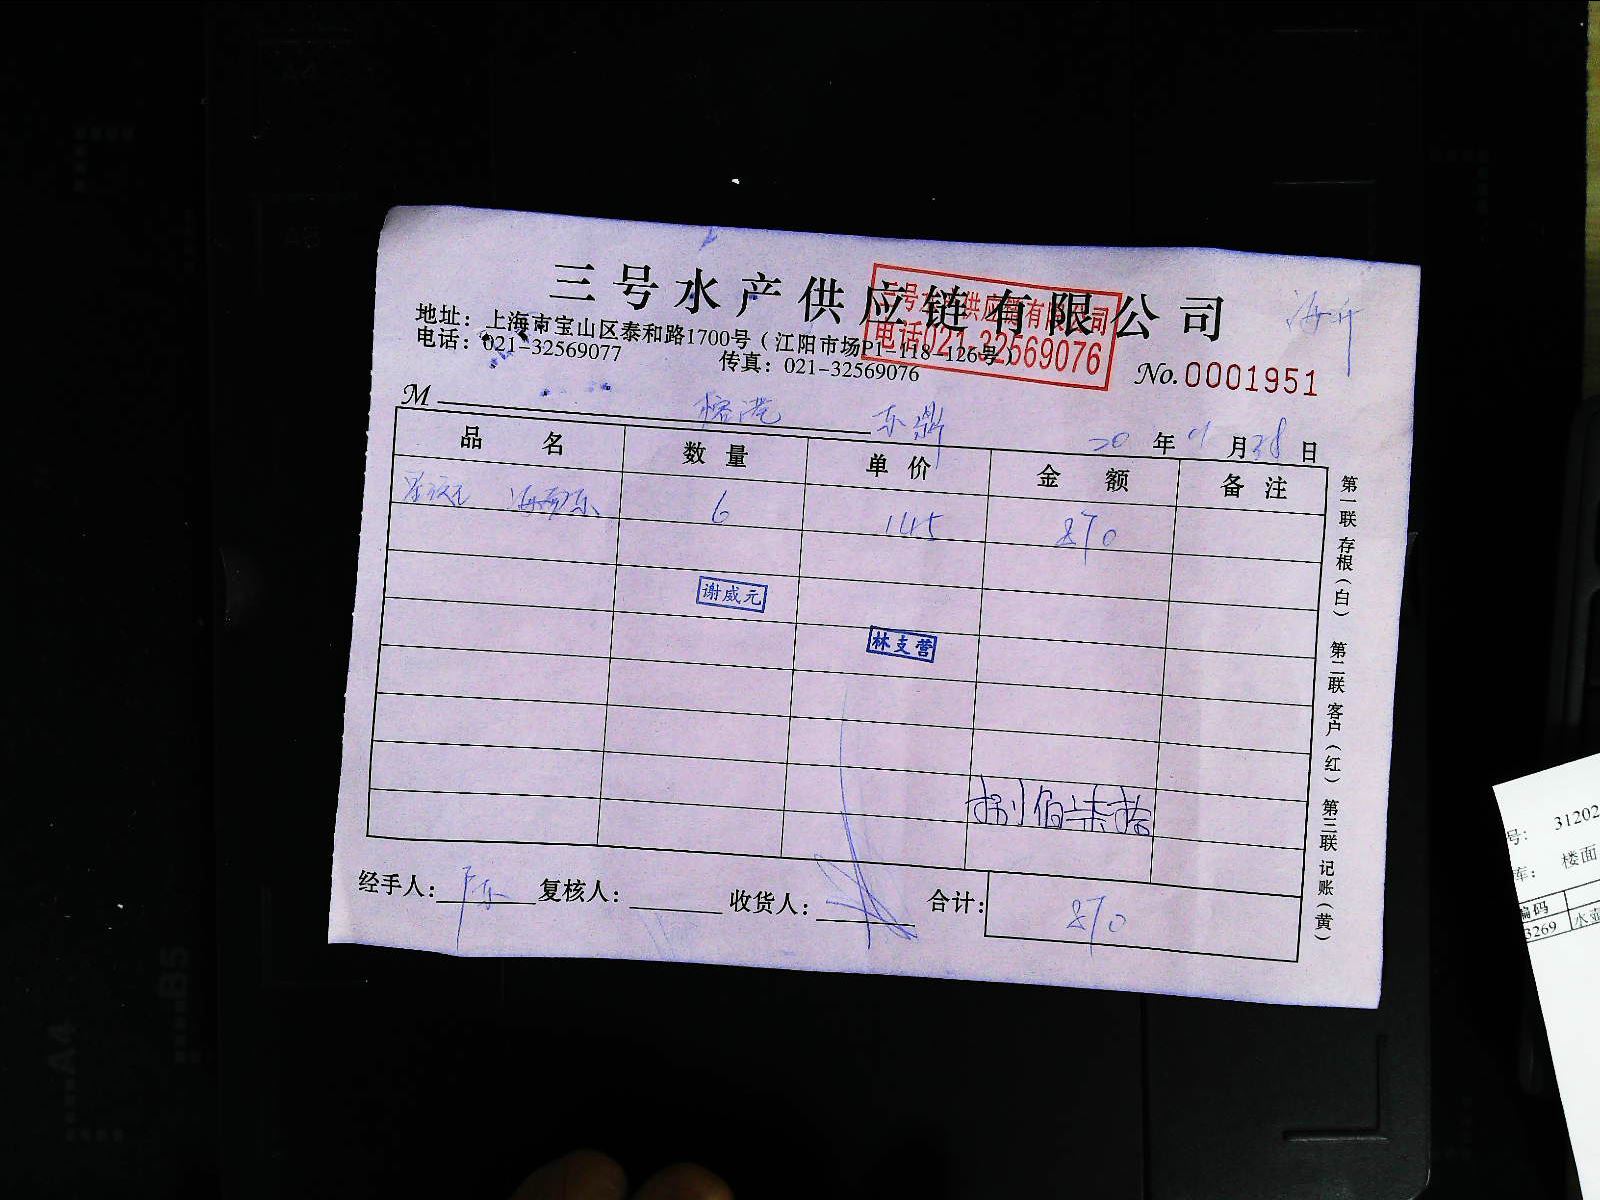 三号水产供应链有限公司
三号水产供应链有限公司
电话021-32569076
地址：上海市宝山区泰和路1700号（江阳市场P1-118-126号）
电话：021-32569077 传真：021-32569076
No.0001951
M 榕港 东鼎 20年 月28日
品名 数量 单价 金额 备注
6 145 870
谢威元
林支营
捌佰柒拾
经手人： 复核人： 收货人： 合计：870
第一联存根（白）
第二联客户（红）
第三联记账（黄）
号： 31202
车： 楼面
编码
3269 水
A4
B5